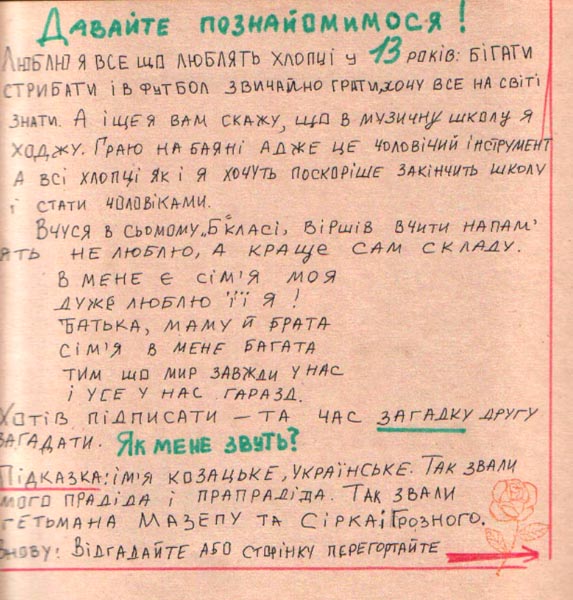 Давайте познайомимося!
Люблю я все що люблять хлопці у 13 років: бігати
стрибати і в футбол звичайно грати, хочу все на світі
знати. А іще я вам скажу, що в музичну школу я
ходжу. Граю на баяні адже це чоловічий інструмент
а всі хлопці як і я хочуть поскоріше закінчить школу
і стати чоловіками.
Вчуся в сьомому „Б" класі, віршів вчити напам'
ять не люблю, а краще сам складу.
В мене є сім'я моя
дуже люблю її я!
Батька, маму й брата
сім'я в мене багата
тим що мир завжди у нас
і усе у нас гаразд.
Хотів підписати – та час загадку другу
загадати. Як мене звуть?
Підказка: ім'я козацьке, українське. Так звали
мого прадіда і прапрадіда. Так звали
гетьмана Мазепу та Сірка і Грозного.
Знову: Відгадайте або сторінку перегортайте